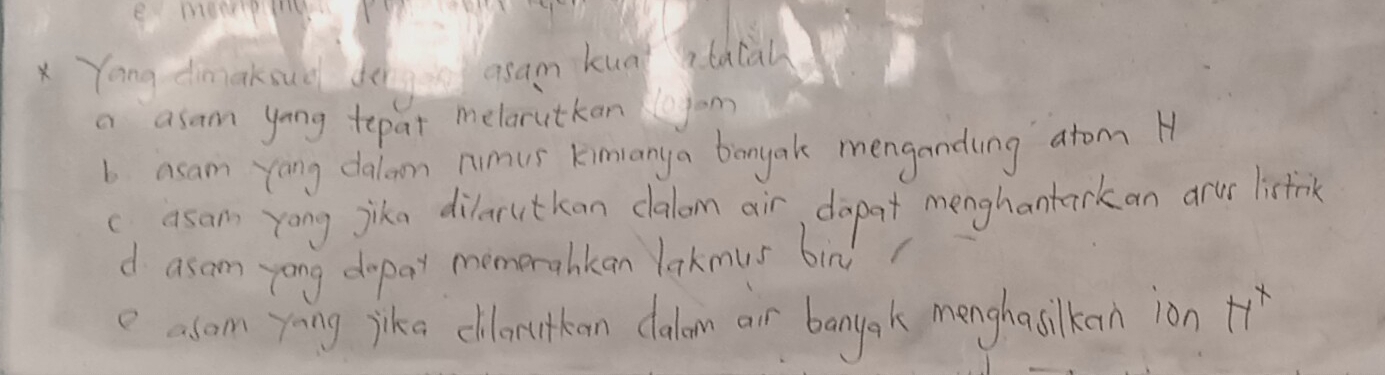 * Yang dimaksud dengan asam kuat ialah
a asam yang tepat melarutkan logam
b. asam yang dalam rumus kimianya banyak mengandung atom H
c asam yang jika dilarutkan dalam air dapat menghantarkan arus listrik
d. asam yang dapat memerahkan lakmus biru
e asam yang jika dilarutkan dalam air banyak menghasilkan ion H⁺